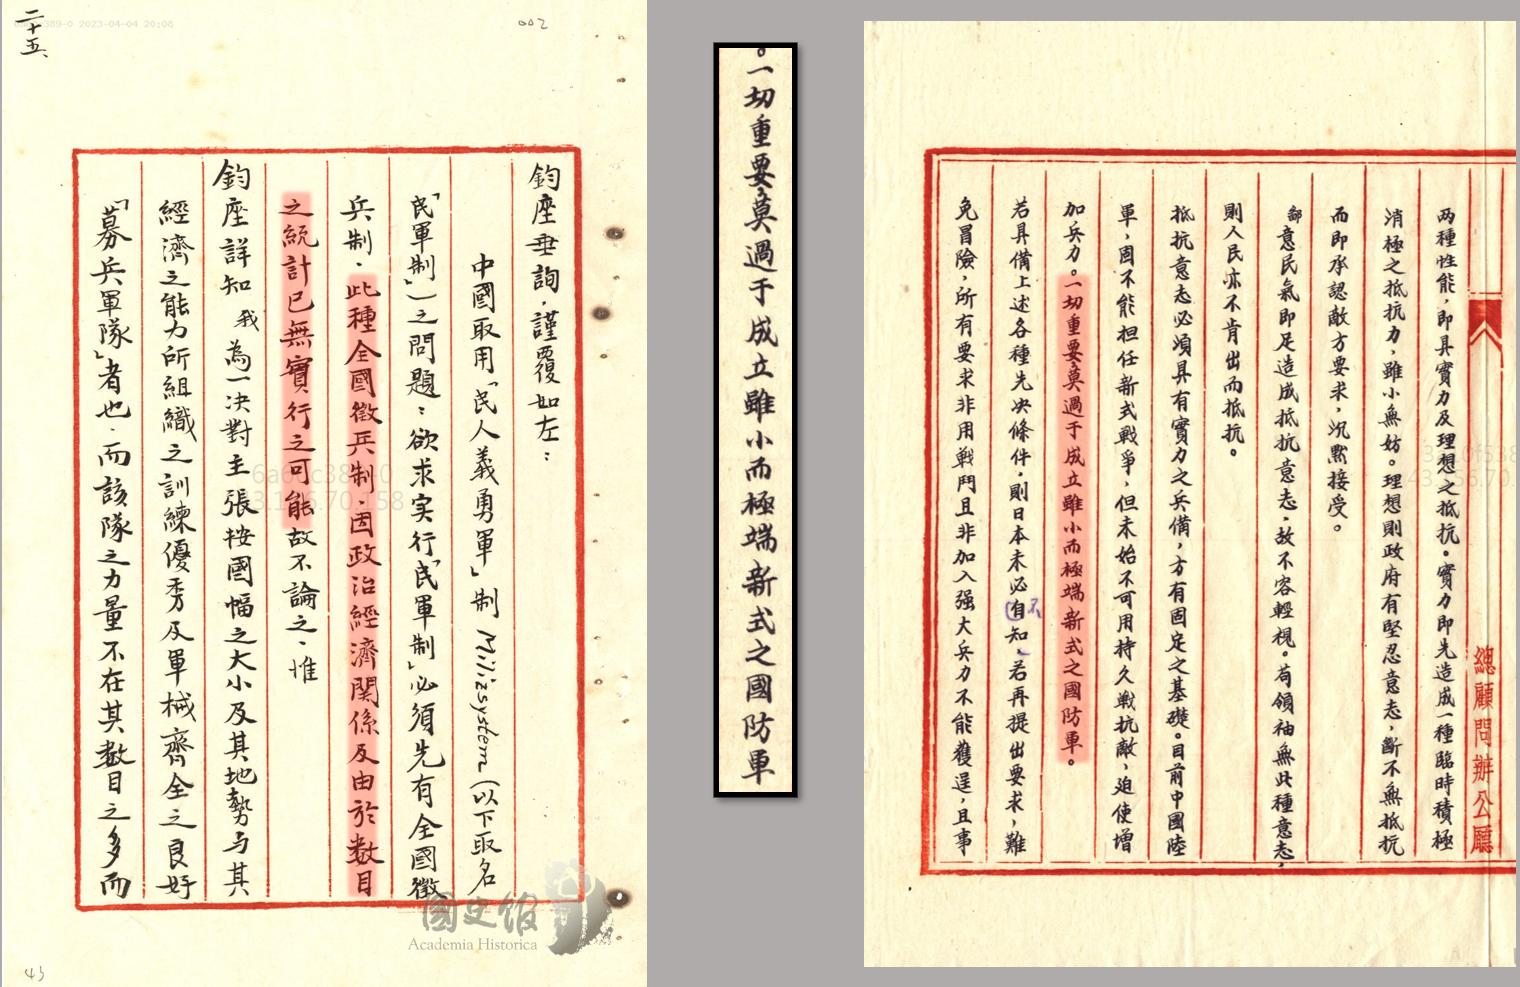 二十五、
389-0 2023-04-04 20:08
002
鈞座垂詢．謹覆如左：
中國取用「民人義勇軍」制 Milizsystem（以下取名
「民軍制」）之問題：欲求实行「民軍制」必須先有全國徵
兵制．此種全國徵兵制．因政治經濟関係及由於数目
之統計已無實行之可能故不論之．惟
鈞座詳知我為一決對主張按國幅之大小及其地勢与其
經濟之能力所組織之訓練優秀及軍械齊全之良好
「募兵軍隊」者也．而該隊之力量不在其数目之多而
43
國史館
Academia Historica
。一切重要，莫過于成立雖小而極端新式之國防軍
總顧問辦公廳
两種性能，即具實力及理想之抵抗。實力即先造成一種臨時積極
消極之抵抗力，雖小無妨。理想則政府有堅忍意志，斷不無抵抗
而即承認敵方要求，沉默接受。
鄙意民氣即足造成抵抗意志，故不容輕視。苟領袖無此種意志，
則人民亦不肯出而抵抗。
抵抗意志必須具有實力之兵備，方有固定之基礎。目前中國陸
軍，固不能担任新式戰爭，但未始不可用持久戰抗敵，迫使增
加兵力。一切重要，莫過于成立雖小而極端新式之國防軍。
若具備上述各種先决條件，則日本未必不知，若再提出要求，難
免冒險，所有要求非用戰鬥且非加入强大兵力不能獲逞，且事